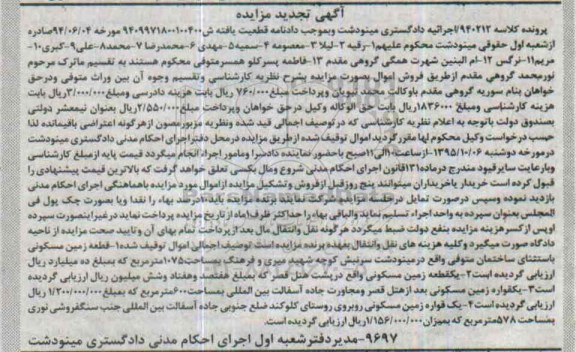 آگهی تجدید مزایده
پرونده کلاسه ۹۴۰۲۱۲/اجرائیه دادگستری مینودشت وبموجب دادنامه قطعیت یافته ش۹۴۰۹۹۷۱۸۰۰۱۰۰۴۰۰ مورخه ۹۴/۰۶/۰۴صادره
ازشعبه اول حقوقی مینودشت محکوم علیهم۱-رقیه ۲-لیلا ۳-معصومه ۴-سمیه۵-مهدی ۶-محمدرضا ۷-محمد۸-علی۹-کبری۱۰-
مریم۱۱-نرگس ۱۲-ام البنین شهرت همگی گروهی مقدم ۱۳-فاطمه پسرکلو همسرمتوفی محکوم هستند به تقسیم ماترک مرحوم
نورمحمد گروهی مقدم ازطریق فروش اموال بصورت مزایده بشرح نظریه کارشناسی وتقسیم وجوه آن بین وراث متوفی ودرحق
خواهان بنام سوریه گروهی مقدم باوکالت محمد نبویان وپرداخت مبلغ ۷۶۰/۰۰۰ ریال بابت هزینه دادرسی ومبلغ۳/۰۰۰/۰۰۰ریال بابت
هزینه کارشناسی ومبلغ ۱۸۳۶۰۰۰ریال بابت حق الوکاله وکیل درحق خواهان وپرداخت مبلغ۲/۵۵۰/۰۰۰ریال بعنوان نیمعشر دولتی
بصندوق دولت باتوجه به اعلام نظریه کارشناسی که درتوصیف اجمالی قید شده ونظریه مزبورمصون ازهرگونه اعتراضی باقیمانده لذا
حسب درخواست وکیل محکوم لها مقررگردید اموال توقیف شده ازطریق مزایده درمحل دفتراجرای احکام مدنی دادگستری مینودشت
درمورخه دوشنبه ۱۳۹۵/۱۰/۰۶-ازساعت۱۰الی۱۱صبح باحضورنماینده دادسرا ومامور اجراء انجام میگردد قیمت پایه ازمبلغ کارشناسی
وبارعایت سایرقیود مندرج درماده۱۳۱قانون اجرای احکام مدنی شروع ومال بکسی تعلق خواهد گرفت که بالاترین قیمت پیشنهادی را
قبول کرده است خریدار یاخریداران میتوانند پنج روزقبل ازفروش وتشکیل مزایده ازاموال مورد مزایده باهماهنگی اجرای احکام مدنی
بازدید نموده وسپس درصورت تمایل درجلسه مزایده شرکت نمایند برنده مزایده باید۱۰درصد بهاء را نقدا ویا بصورت چک پول فی
المجلس بعنوان سپرده به واحد اجراء تسلیم نماید والباقی بهاء را حداکثر ظرف۱ماه ازتاریخ مزایده پرداخت نماید درغیراینصورت سپرده
اوپس ازکسرهزینه مزایده بنفع دولت ضبط میگردد هرگونه نقل وانتقال مال بعد ازپرداخت تمام بهای آن وتایید صحت مزایده از ناحیه
دادگاه صورت میگیرد وکلیه هزینه های نقل وانتقال بعهده برنده مزایده است توصیف اجمالی اموال توقیف شده۱-قطعه زمین مسکونی
باستثنای ساختمان متوفی واقع درمینودشت سرنبش کوچه شهید نیری و فرهنگ بمساحت۱۰۷۵مترمربع که بمبلغ ده میلیارد ریال
ارزیابی گردیده است۲-یکقطعه زمین مسکونی واقع در پشت هتل قصر که بمبلغ هفتصد وهفتاد وشش میلیون ریال ارزیابی گردیده
است۳-یکقواره زمین مسکونی بعد ازهتل قصر ومجاورت جاده آسفالت بین المللی بمساحت۶۰۰مترمربع که بمبلغ۱/۲۰۰/۰۰۰/۰۰۰ریال
ارزیابی گردیده است۴-یک قواره زمین مسکونی روبروی روستای کلوکند ضلع جنوبی جاده آسفالت بین المللی جنب سنگفروشی نوری
بمساحت ۵۷۸مترمربع که بمیزان۱/۱۵۶/۰۰۰/۰۰۰ریال ارزیابی گردیده است.
۹۶۹۷-مدیردفترشعبه اول اجرای احکام مدنی دادگستری مینودشت